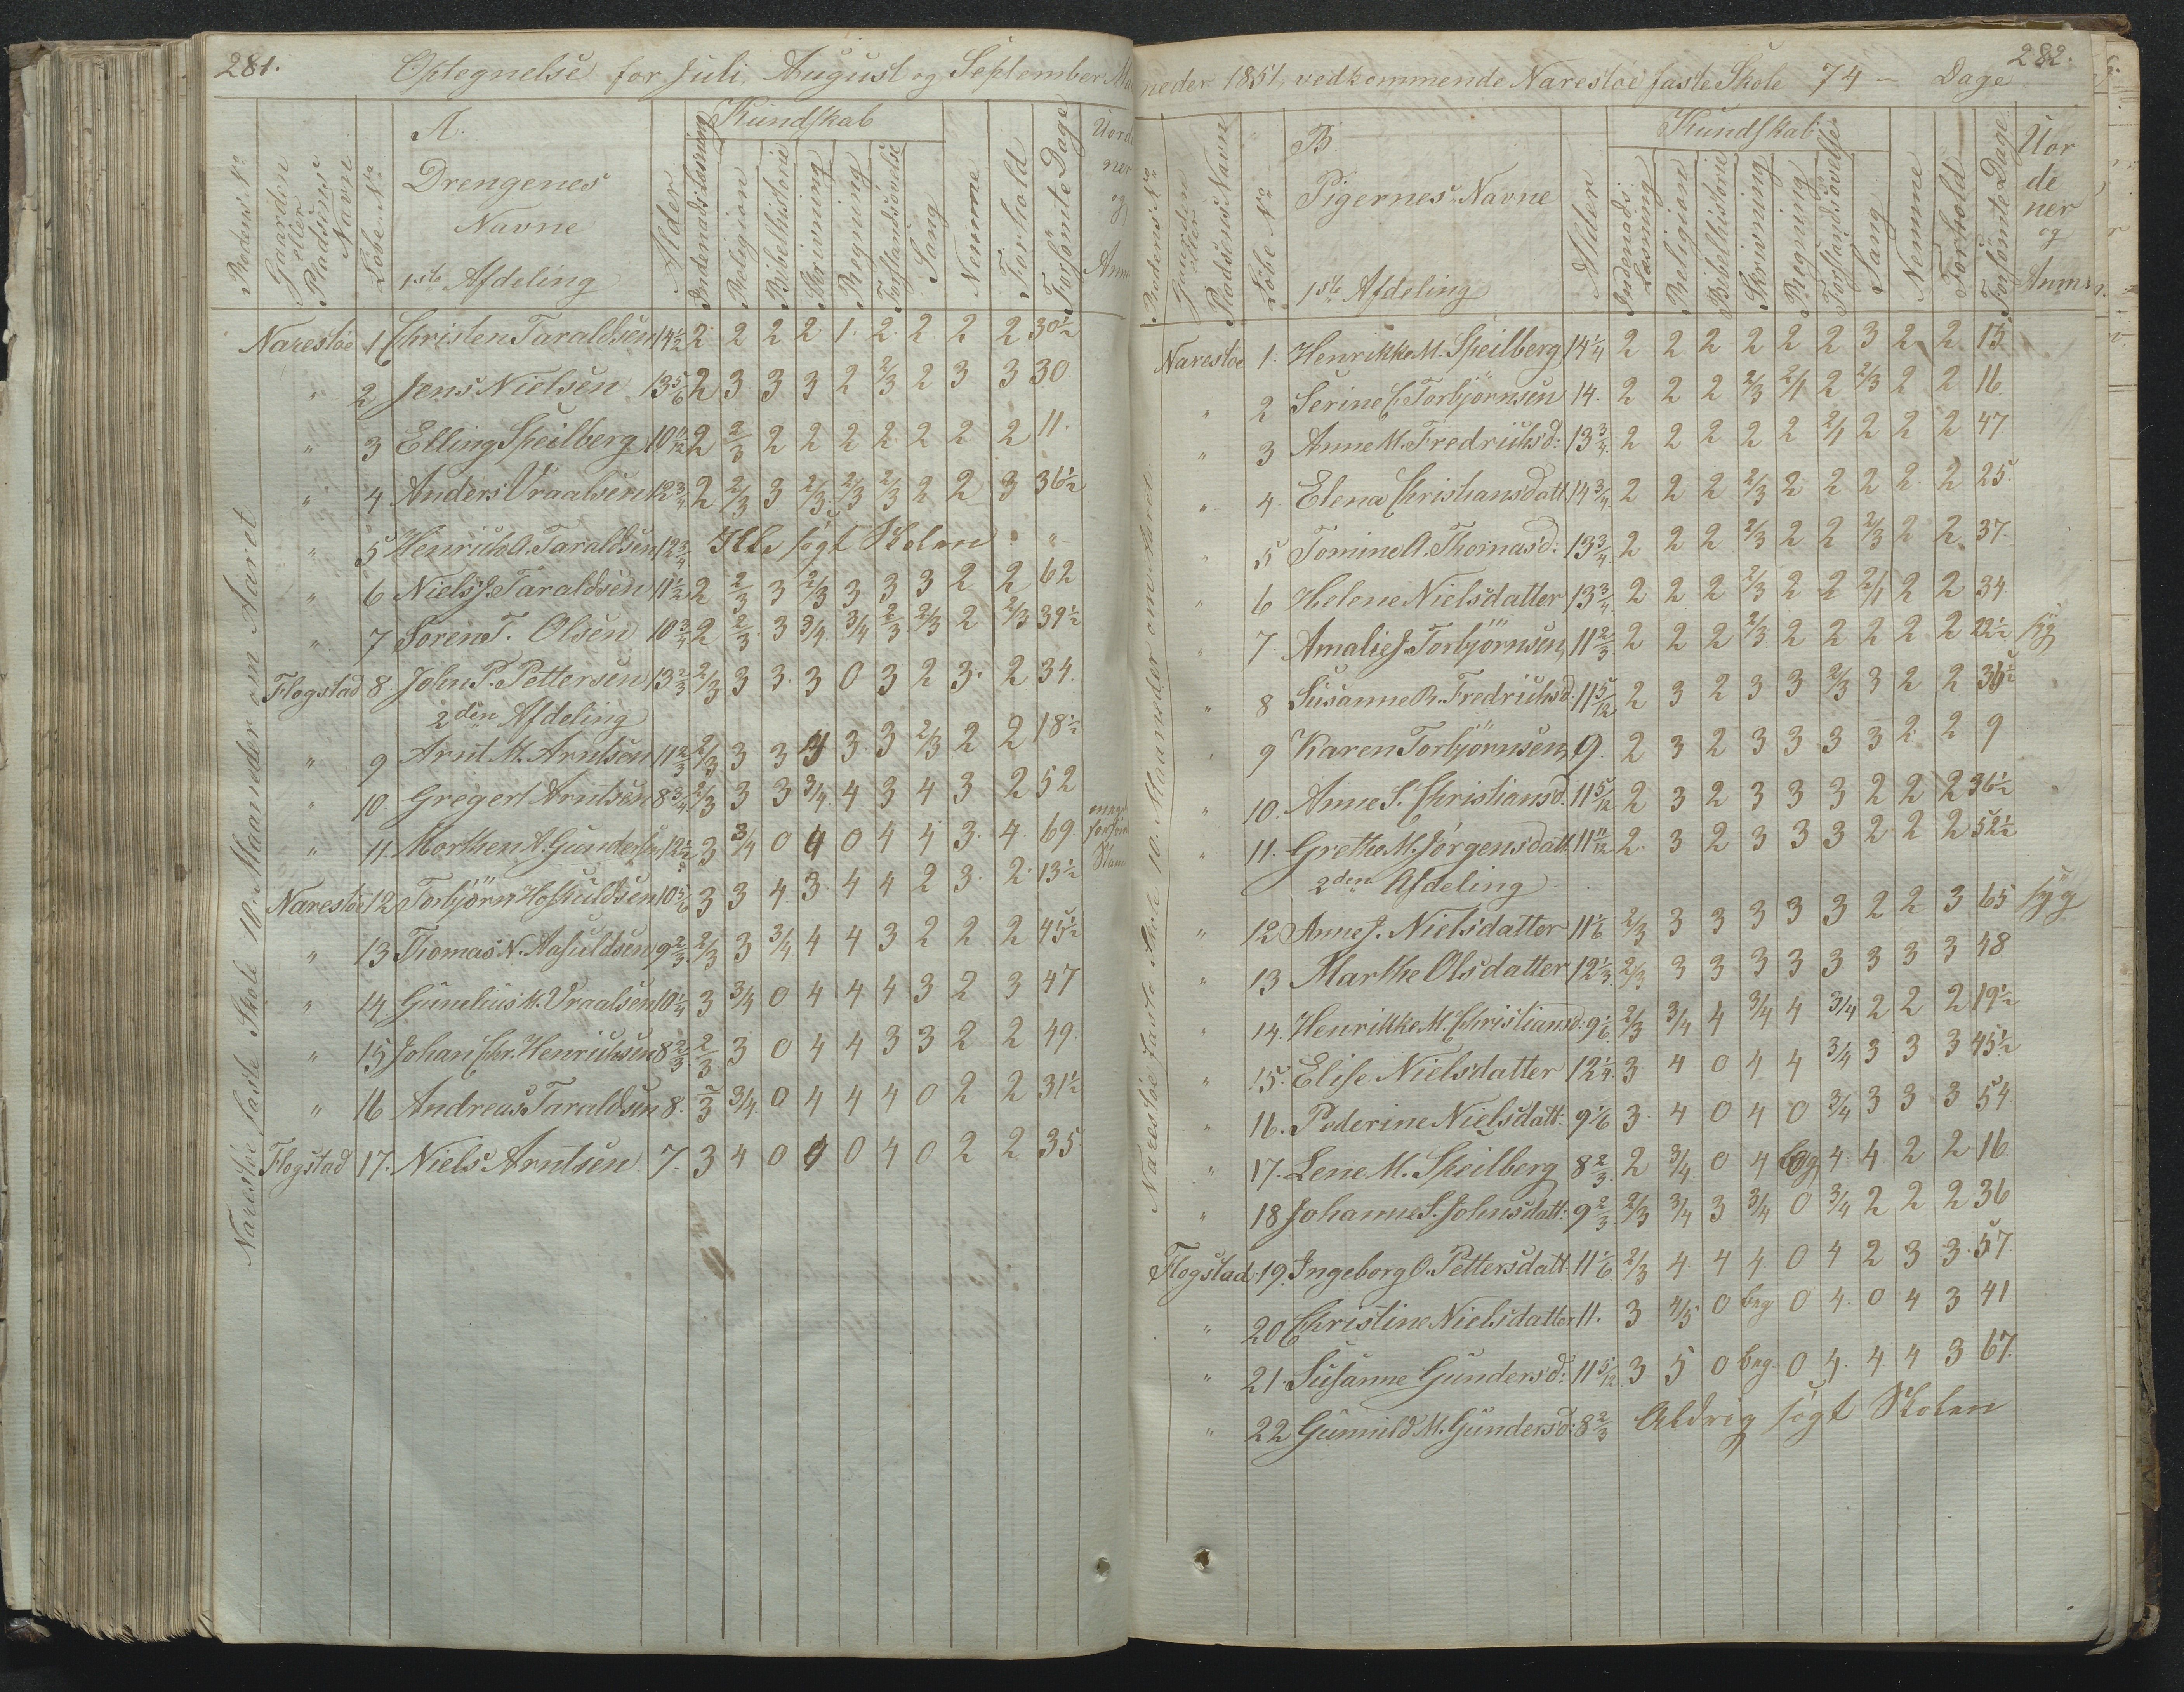 281.
Optegnelse for Juli, August og September Ma
Rodens No
Gaarden eller Pladsens Navn
Løbe No
A.
Drengenes
Navne
1ste Afdeling
Alder
Kundskab
Indenadslæsning
Religion
Bibelhistorie
Skrivning
Regning
Forstandsøvelse
Sang
Nemme
Forhold
Forsømte Dage
Uord
ner
og
Anm
Narestøe faste Skole 10. Maaneder om Aaret
Narestøe 1 Christen Taraldsen 14 1/2 2 2 2 2 1 2 2 2 2 30 1/2
" 2 Jens Nielsen 13 5/6 2 3 3 3 2 2/3 2 3 3 30
" 3 Elling Speilberg 10 11/12 2 2/3 2 2 2 2 2 2 2 11.
" 4 Anders Vraalsen 12 3/4 2 2/3 3 2/3 2/3 2/3 2 2 3 36 1/2
" 5 Henrich A. Taraldsen 12 3/4 Ikke søgt Skolen "
" 6 Niels J. Taraldsen 11 1/2 2 2/3 3 2/3 3 3 3 2 2 62
" 7 Søren T. Olsen 10 3/4 2 2/3 3 3/4 3/4 2/3 2/3 2 2/3 39 1/2
Flogstad 8. John P. Pettersen 13 2/3 2/3 3 3. 3 0 3 2 3. 2 34.
2den Afdeling
" 9 Arnt M. Arntsen 11 2/3 2/3 3 3 4 3 3 2/3 2 2 18 1/2
" 10. Gregert Arntsen 8 3/4 2/3 3 3 3/4 4 3 4 3 2 52
" 11. Morthen A. Gundersen 12 1/2 3 3/4 0 4 0 4 4 3. 4. 69
Narestøe 12 Torbjörn Hofsuldsen 10 5/6 3 3 4 3. 4 4 2 3. 2. 13 1/2
" 13 Thomas N. Aasuldsen 9 2/3 2/3 3 3/4 4 4 3 2 2 2 45 1/2
" 14. Gunelius M. Vraalsen 10 1/4 3 3/4 0 4 4 4 3 2 3 47
" 15 Johan Chr. Henrichsen 8 2/3 2/3 3 0 4 4 3 3 2 2 49
" 16 Andreas Taraldsen 8. 2/3 3/4 0 4 4 4 0 2 2 31 1/2
Flogstad 17. Niels Arntsen 7. 3 4 0 4 0 4 0 2 2 35
282.
neder 1851, vedkommende Narestøe faste Skole 74 - Dage
Rodens No
Gaarden eller Pladsens Navn
Løbe No
B.
Pigernes Navne
1ste Afdeling
Alder
Kundskab
Indenads Læsning
Religion
Bibelhistorie
Skrivning
Regning
Forstandsøvelse
Sang
Nemme
Forhold
Forsømte Dage
Uor
de
ner
og
Anm
Narestøe faste Skole 10. Maaneder om Aaret
Narestøe 1. Henrikke M. Speilberg 14 1/4 2 2 2 2 2 2 3 2 2 13
" 2 Serine C. Torbjörnsen 14. 2 2 2 2/3 2/1 2 2/3 2 2 16
" 3 Anne M. Fredrichsd: 13 3/4 2 2 2 2 2 2/1 2 2 2 47
" 4. Elena Christiansdatt. 14 3/4 2 2 2 2/3 2 2 2 2 2 25.
" 5 Tomine A. Thomasd: 13 3/4 2 2 2 2/3 2 2 2/3 2 2 37.
" 6 Helene Nielsdatter 13 3/4 2 2 2 2/3 2 2 2/1 2 2 34
" 7. Amalie J. Torbjörnsen 11 2/3 2 2 2 2/3 2 2 2 2 2 22 1/2 syg
" 8 Susanne R. Fredrichsd. 11 5/12 2 3 2 3 3 2/3 3 2 2 36 1/2
" 9 Karen Torbjörnsen 9. 2 3 2 3 3 3 3 2 2 9
" 10. Anne S. Christiansd. 11 5/12 2 3 2 3 3 3 2 2 2 36 1/2
" 11. Grethe M. Jørgensdatt. 11 11/12 2 3 2 3 3 3 2 2 2 52 1/2
2den Afdeling
" 12 Anne J. Nielsdatter 11 1/6 2/3 3 3 3 3 3 2 2 3 65 syg
" 13 Marthe Olsdatter 12 1/3 2/3 3 3 3 3 3 3 3 3 48
" 14. Henrikke M. Christiansd: 9 1/6 2/3 3/4 4 3/4 4 3/4 2 2 2 19 1/2
" 15. Elise Nielsdatter 12 1/4 3 4 0 4 4 3/4 3 3 3 45 1/2
" 16. Pederine Nielsdatt: 9 1/6 3 4 0 4 0 3/4 3 3 3 54.
" 17. Lene M. Speilberg 8 2/3 2 3/4 0 4 beg 4 4 2 2 16
" 18 Johanne S. Johnsdatt: 9 2/3 2/3 3/4 3 3/4 0 3/4 2 2 2 36
Flogstad 19. Ingeborg O. Pettersdatt. 11 1/6 2/3 4 4 4 0 4 2 3 3. 57.
" 20 Christine Nielsdatter 11. 3 4/5 0 beg 0 4. 0 4 3 41
" 21. Susanne Gundersd: 11 5/12 3 5 0 beg. 0 4. 4 4 3 67.
" 22 Gunnild M. Gundersd: 8 2/3 Aldrig søgt Skolen